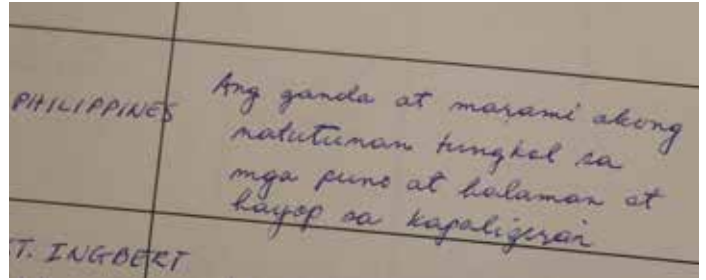 PHILIPPINES
Ang ganda at marami akong
natutunan tungkol sa
mga puno at halaman at
hayop sa kapaligiran
ST. INGBERT